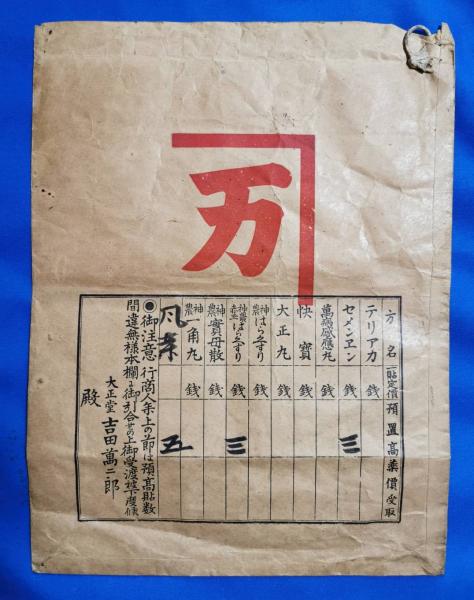 万
方名 一貼定價 預置高 藥價受取
テリアカ 銭
セメンヱン 銭 三
感應丸 銭
快寶 銭
大正丸 銭
神農はらくすり 銭
はらくすり 銭 三
神農實母散 銭
神農一角丸 銭
風薬 五
●御注意 行商人参上の節は預高貼数
間違無様本欄に御引合せの上御受渡被下度候
大正堂 吉田萬二郎
殿